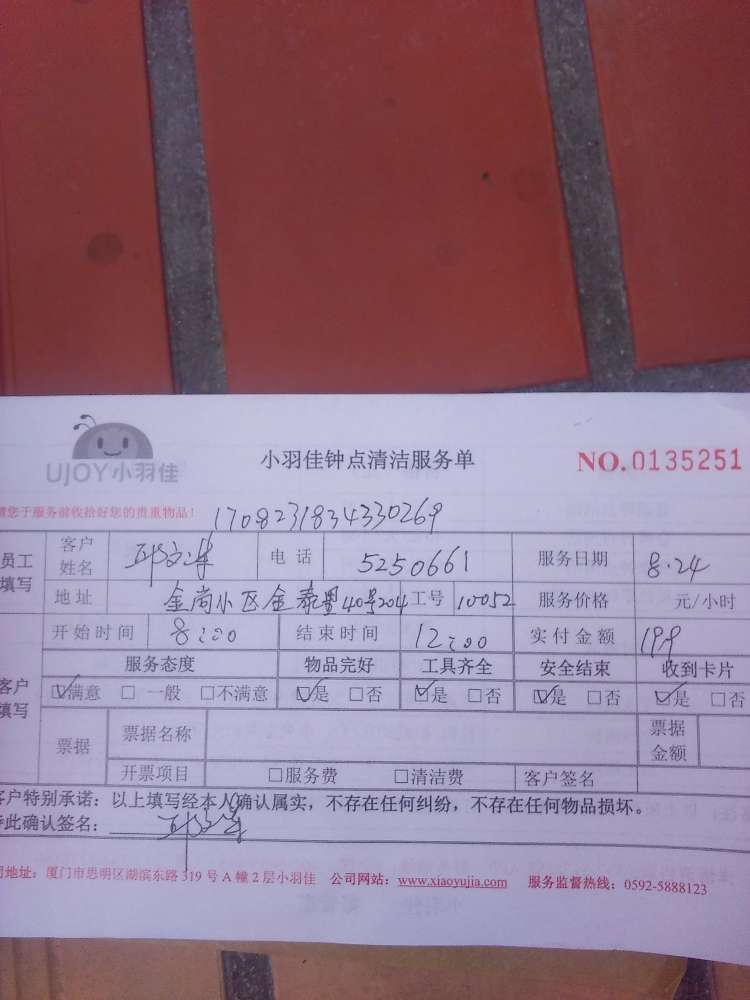 UJOY小羽佳
小羽佳钟点清洁服务单
NO.0135251
您于服务前收拾好您的贵重物品！ 1708231834330269
员工填写 客户姓名 电话 5250661 服务日期 8.24
地址 金尚小区金泰里40号204 工号 10052 服务价格 元/小时
开始时间 8:00 结束时间 12:00 实付金额 199
客户填写 服务态度 物品完好 工具齐全 安全结束 收到卡片
☑满意 □一般 □不满意 ☑是 □否 ☑是 □否 ☑是 □否 ☑是 □否
票据 票据名称 票据金额
开票项目 □服务费 □清洁费 客户签名
客户特别承诺：以上填写经本人确认属实，不存在任何纠纷，不存在任何物品损坏。
此确认签名：
地址：厦门市思明区湖滨东路319号A幢2层小羽佳 公司网站：www.xiaoyujia.com 服务监督热线：0592-5888123